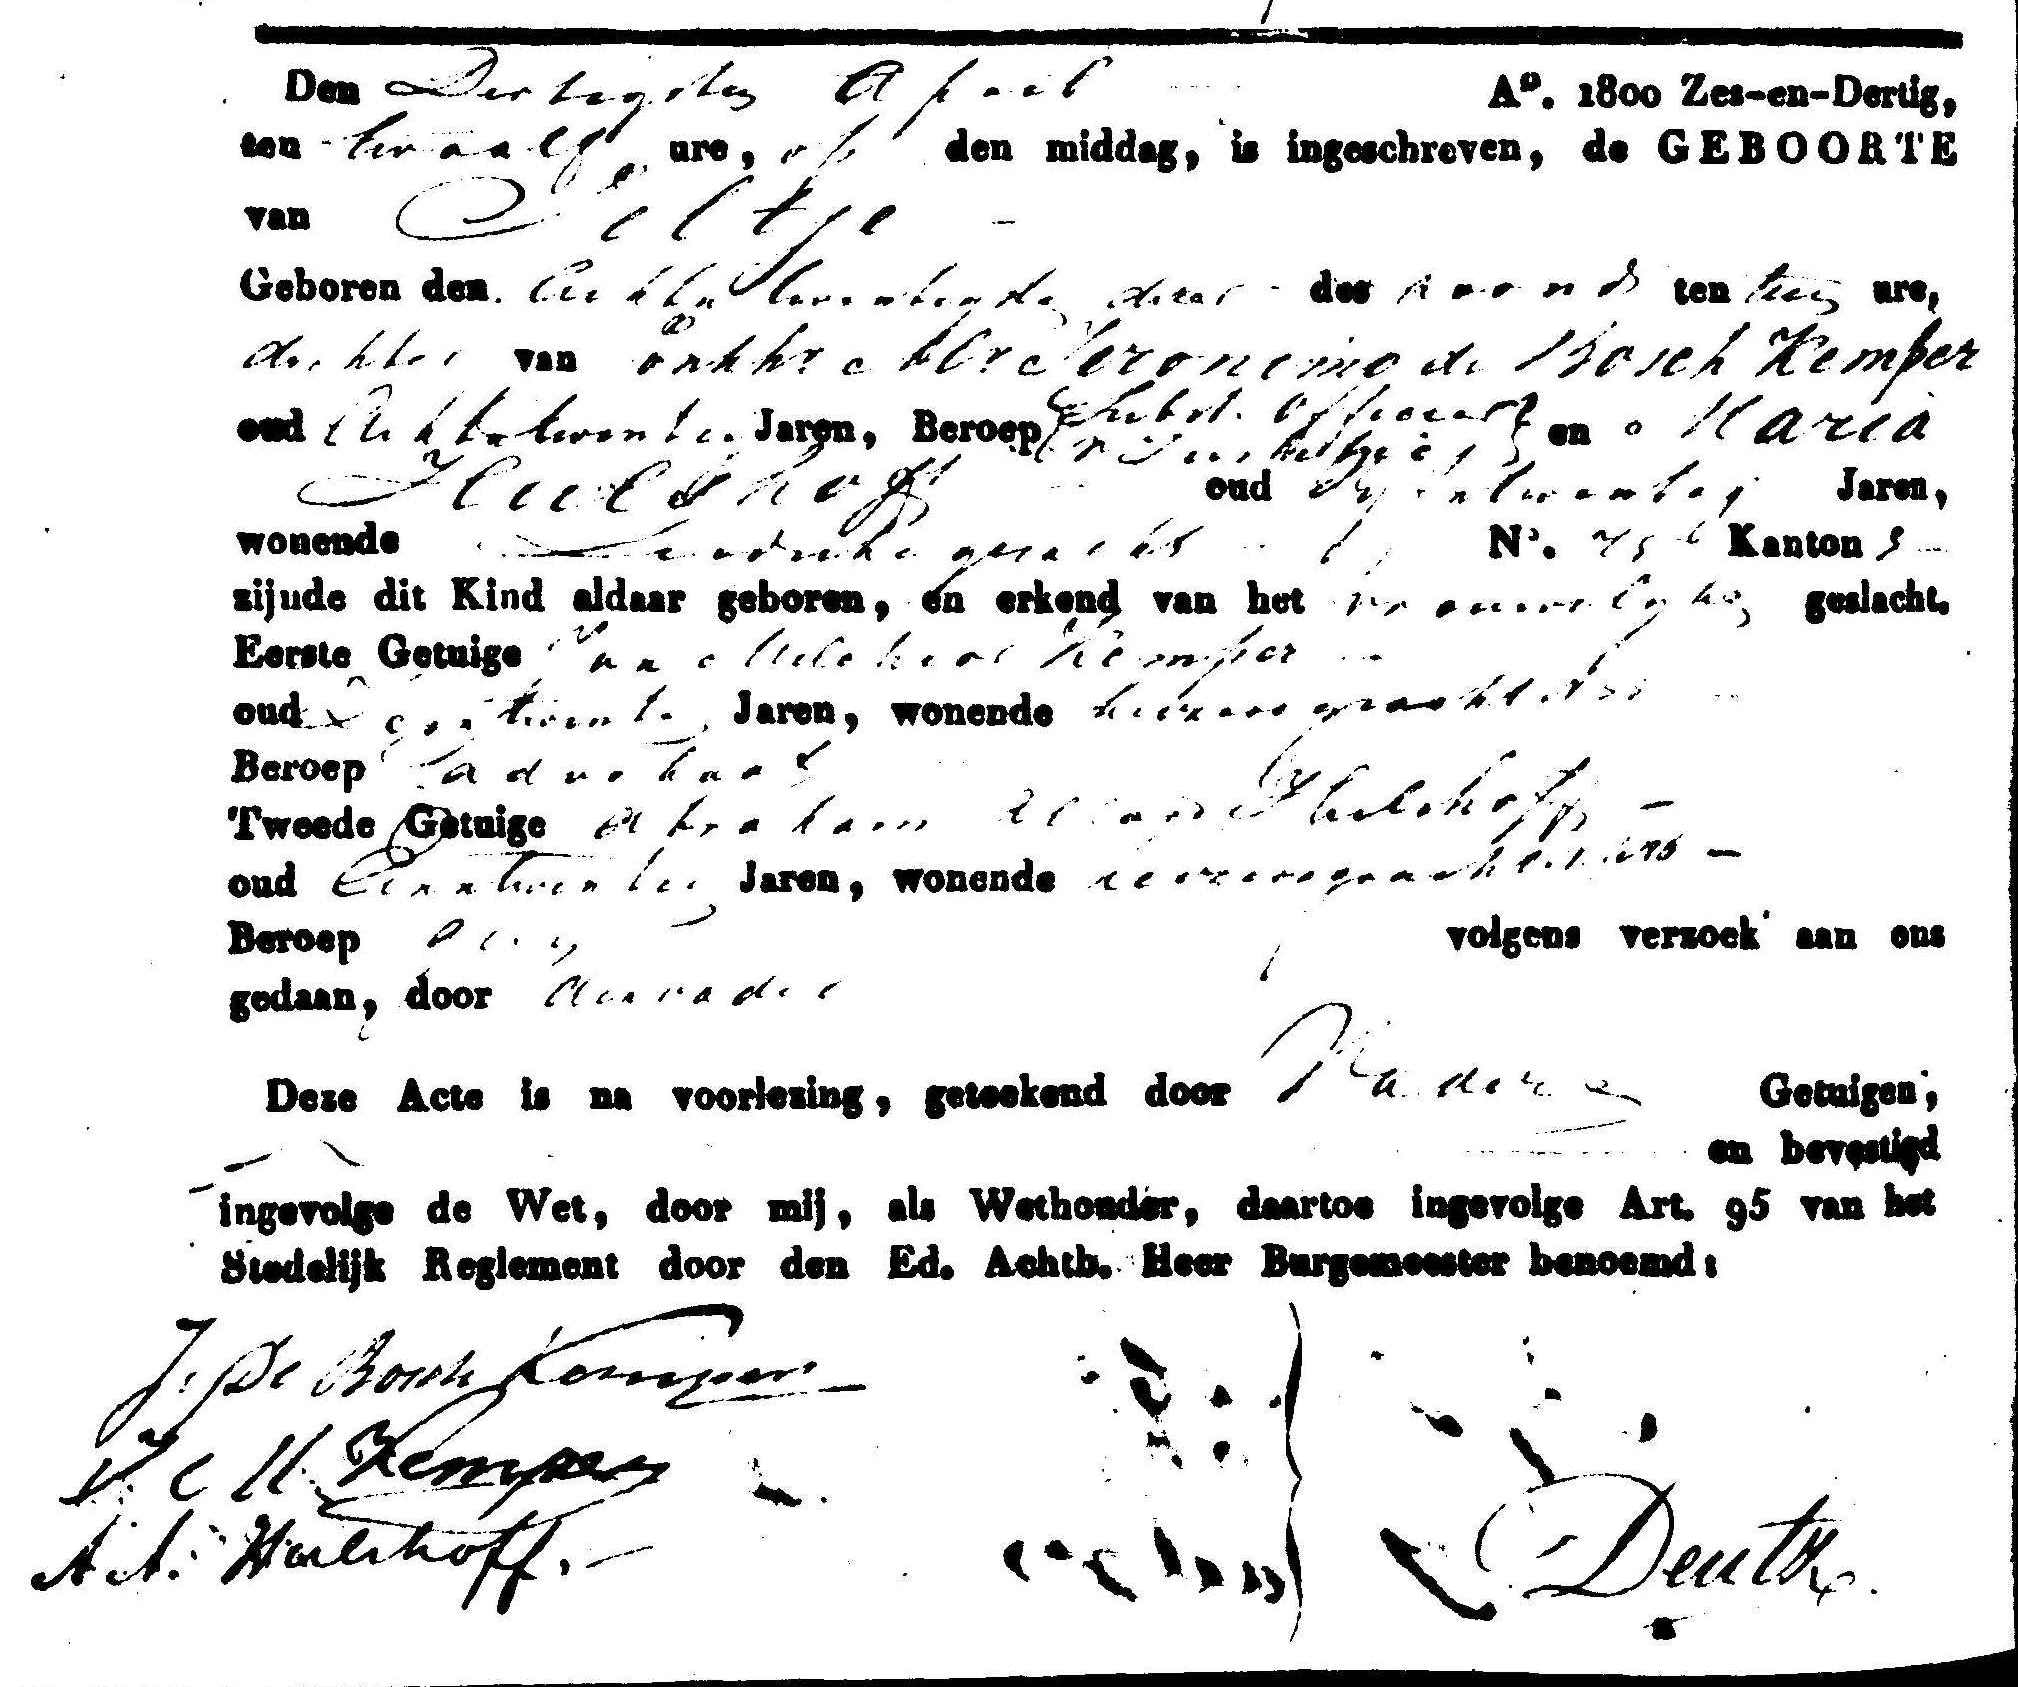 Den Dertigsten April A°. 1800 Zes-en-Dertig,
ten twaalf ure, op den middag, is ingeschreven, de GEBOORTE
van Jeltje
Geboren den Achtentwintigsten dezer des avonds ten tien ure,
dochter van Jonkhr Mr Jeronimo de Bosch Kemper
oud Achtentwintig Jaren, Beroep Subst. Officier v Justitie en Maria
Hulshoff oud Jaren,
wonende Leidsche gracht N°. Kanton 3
zijnde dit Kind aldaar geboren, en erkend van het vrouwelyke geslacht.
Eerste Getuige Jan Melchior Kemper
oud Jaren, wonende heerengracht
Beroep advokaat
Tweede Getuige Abraham Hulshoff
oud Eenentwintig Jaren, wonende keizersgracht
Beroep volgens verzoek aan ons
gedaan, door den vader
Deze Acte is na voorlezing, geteekend door Vader en Getuigen,
en bevestigd
ingevolge de Wet, door mij, als Wethouder, daartoe ingevolge Art. 95 van het
Stedelijk Reglement door den Ed. Achtb. Heer Burgemeester benoemd:
J. De Bosch Kemper
J. M. Kemper
A. A. Hulshoff.
Deutz